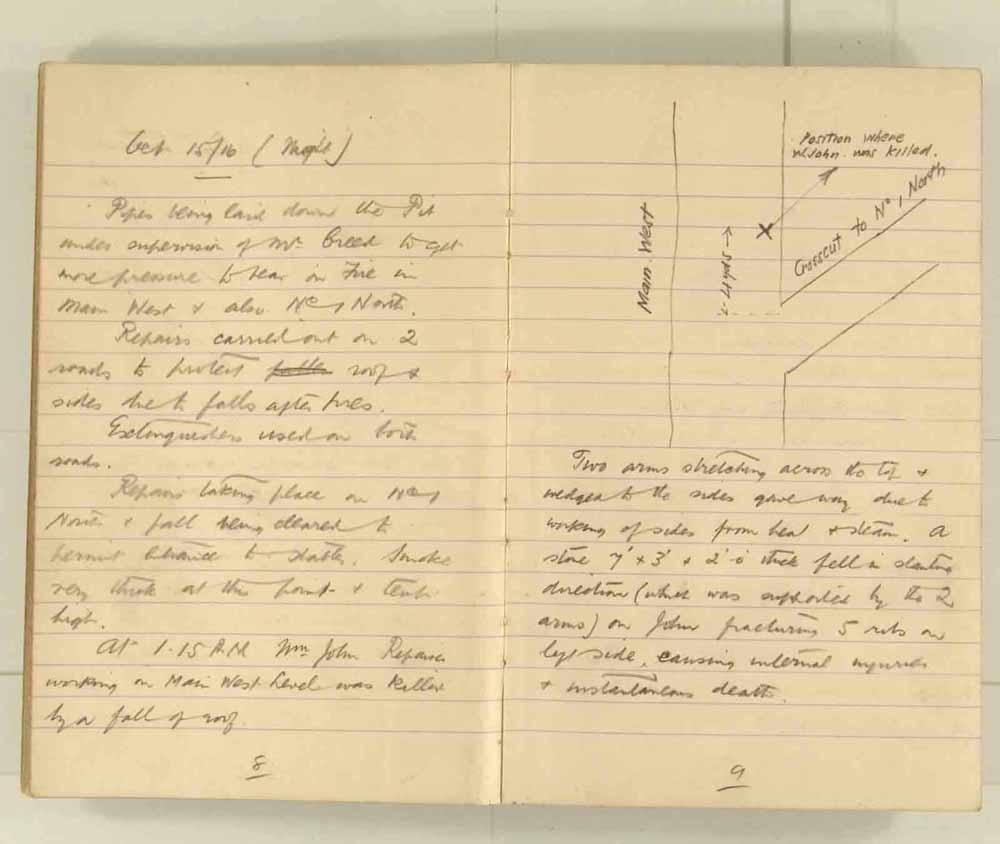 Oct 15/16 (Night)
Pipes being laid down the Pit
under supervision of Mr Creed to get
more pressure to bear on Fire in
Main West & also No 1 North.
Repairs carried out on 2
roads to protect roof &
sides due to falls after fires.
Extinguishers used on both
roads.
Repairs taking place on No 1
North & fall being cleared to
permit entrance to stables. Smoke
very thick at this point & temp:
high.
At 1.15 A.M. Wm John Repairer
working on Main West Level was killed
by a fall of roof.
8
Position where
W. John was killed.
Main West
← 4 yds →
X
Crosscut to No 1 North
Two arms stretching across the top &
wedged to the sides gave way due to
working of sides from heat & steam. A
stone 7' x 3' x 2'-0 thick fell in slanting
direction (which was supported by the 2
arms) on John fracturing 5 ribs on
left side, causing internal injuries
& instantaneous death.
9